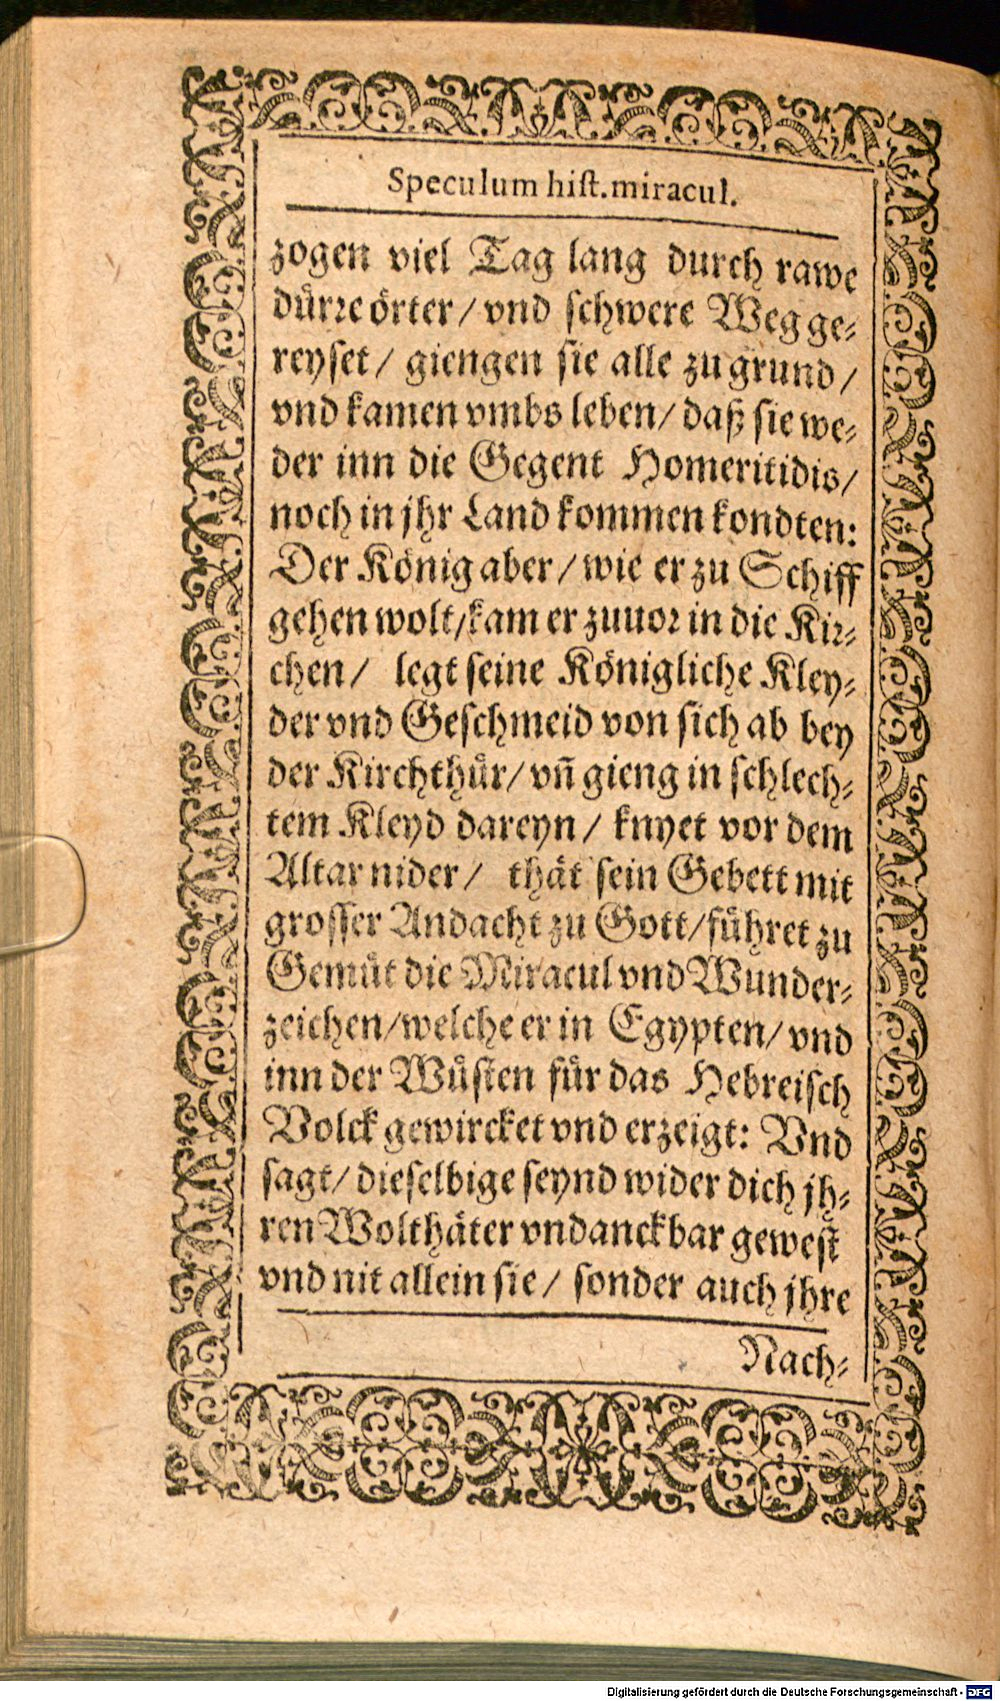 Speculum hiſt. miracul.
zogen viel Tag lang durch rawe
dürre örter / vnd ſchwere Weg ge-
reyſet / giengen ſie alle zu grund /
vnd kamen vmbs leben / daß ſie we-
der inn die Gegent Homeritidis /
noch in jhr Land kommen kondten:
Der König aber / wie er zu Schiff
gehen wolt / kam er zuuor in die Kir-
chen / legt ſeine Königliche Kley-
der vnd Geſchmeid von ſich ab bey
der Kirchthür / vñ gieng in ſchlech-
tem Kleyd dareyn / knyet vor dem
Altar nider / thät ſein Gebett mit
groſſer Andacht zu Gott / führet zu
Gemüt die Miracul vnd Wunder-
zeichen / welche er in Egypten / vnd
inn der Wüſten für das Hebreiſch
Volck gewircket vnd erzeigt: Vnd
ſagt / dieſelbige ſeynd wider dich jh-
ren Wolthäter vndanckbar geweſt
vnd nit allein ſie / ſonder auch jhre
Nach-
Digitalisierung gefördert durch die Deutsche Forschungsgemeinschaft - DFG